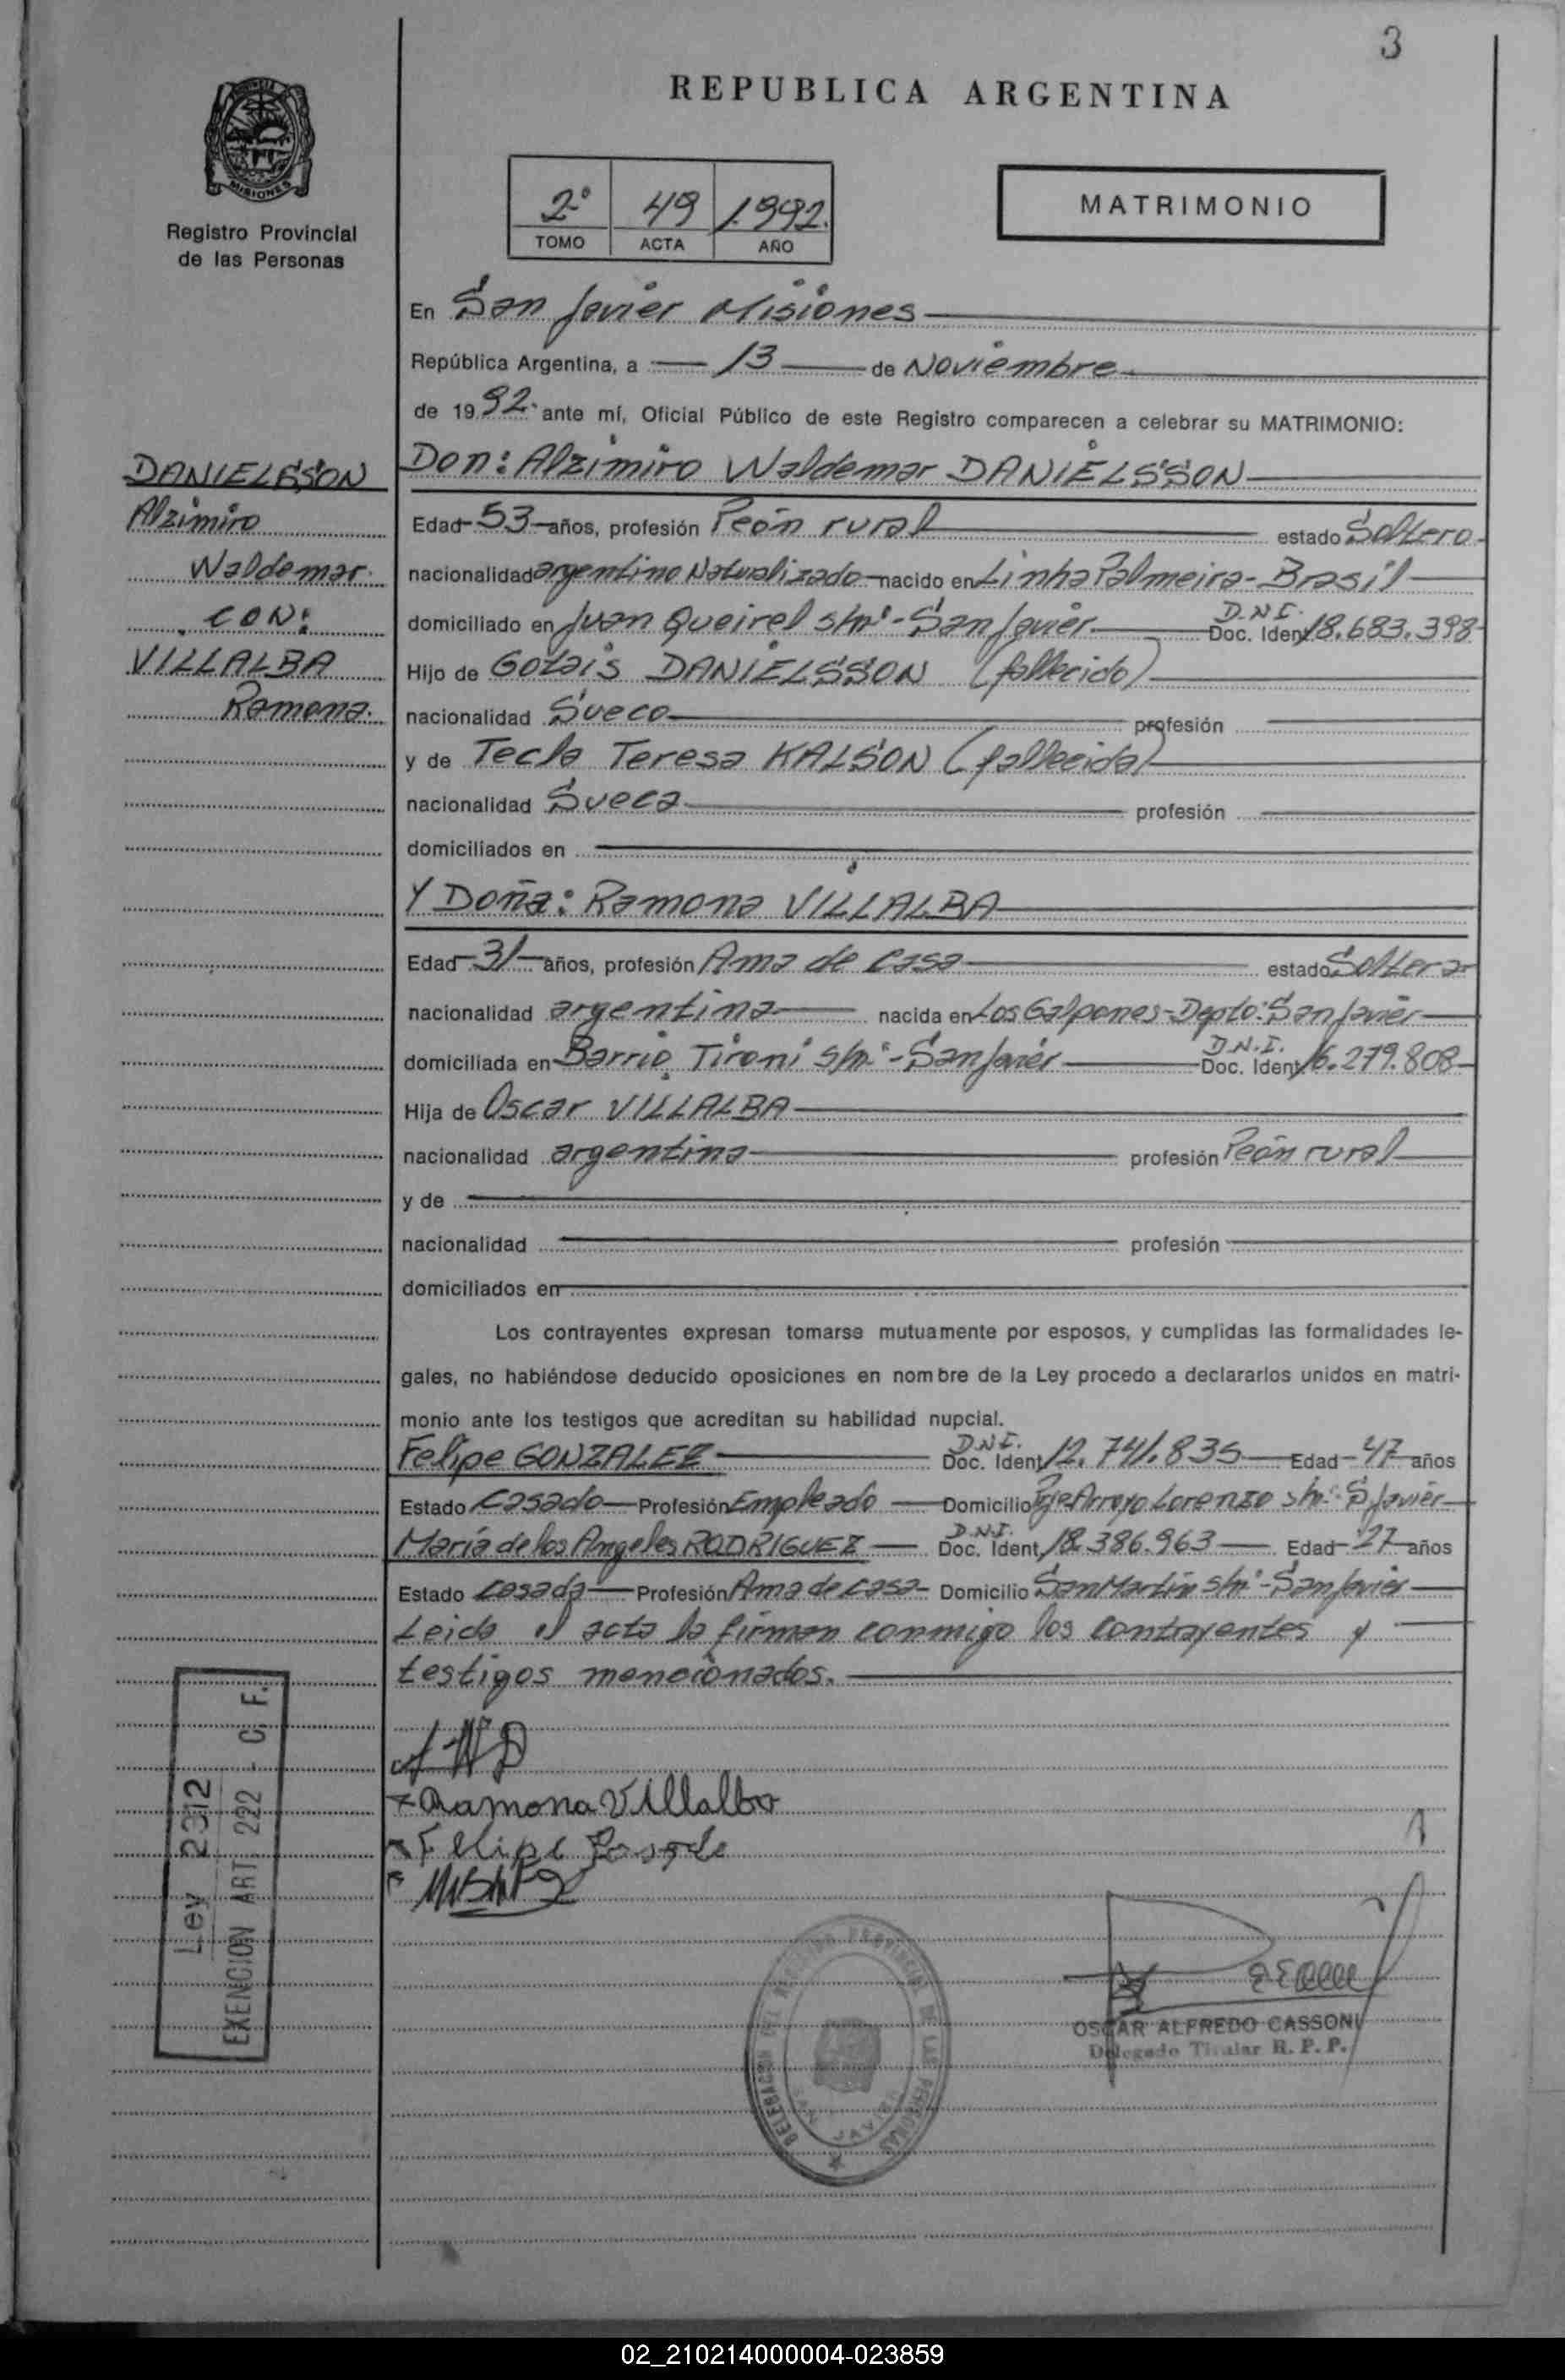 3
REPUBLICA ARGENTINA
MISIONES
Registro Provincial
de las Personas
2º 49 1.992.
TOMO ACTA AÑO
MATRIMONIO
En San Javier Misiones
República Argentina, a 13 de Noviembre
de 1992. ante mí, Oficial Público de este Registro comparecen a celebrar su MATRIMONIO:
DANIELSSON
Alzimiro
Waldemar.
CON:
VILLALBA
Ramona.
Don: Alzimiro Waldemar DANIELSSON
Edad 53 años, profesión Peón rural estado Soltero
nacionalidad argentino Naturalizado nacido en Linha Palmeira - Brasil
domiciliado en Juan Queirel s/nº - San Javier D.N.I. Doc. Ident 18.683.398
Hijo de Gotais DANIELSSON (fallecido)
nacionalidad Sueco profesión
y de Tecla Teresa KALSON (fallecida)
nacionalidad Sueca profesión
domiciliados en
Y Doña: Ramona VILLALBA
Edad 31 años, profesión Ama de casa estado Soltera
nacionalidad argentina nacida en Los Galpones - Depto: San Javier
domiciliada en Barrio Tironi s/nº - San Javier D.N.I. Doc. Ident 16.279.808
Hija de Oscar VILLALBA
nacionalidad argentina profesión Peón rural
y de
nacionalidad profesión
domiciliados en
Los contrayentes expresan tomarse mutuamente por esposos, y cumplidas las formalidades le-
gales, no habiéndose deducido oposiciones en nombre de la Ley procedo a declararlos unidos en matri-
monio ante los testigos que acreditan su habilidad nupcial.
Felipe GONZALEZ D.N.I. Doc. Ident 12.741.835 Edad 47 años
Estado Casado Profesión Empleado Domicilio Pje Arroyo Lorenzo s/nº S. Javier
María de los Angeles RODRIGUEZ D.N.I. Doc. Ident 18.386.963 Edad 27 años
Estado casada Profesión Ama de casa Domicilio San Martín s/nº - San Javier
Leida el acta la firman conmigo los contrayentes y
testigos mencionados.
AWD
Ramona Villalba
Felipe
Ley 2312
EXENCION ART 222 - C. F.
DELEGACION DEL REGISTRO PROVINCIAL DE LAS PERSONAS
SAN JAVIER
OSCAR ALFREDO CASSONI
Delegado Titular R. P. P.
02_210214000004-023859